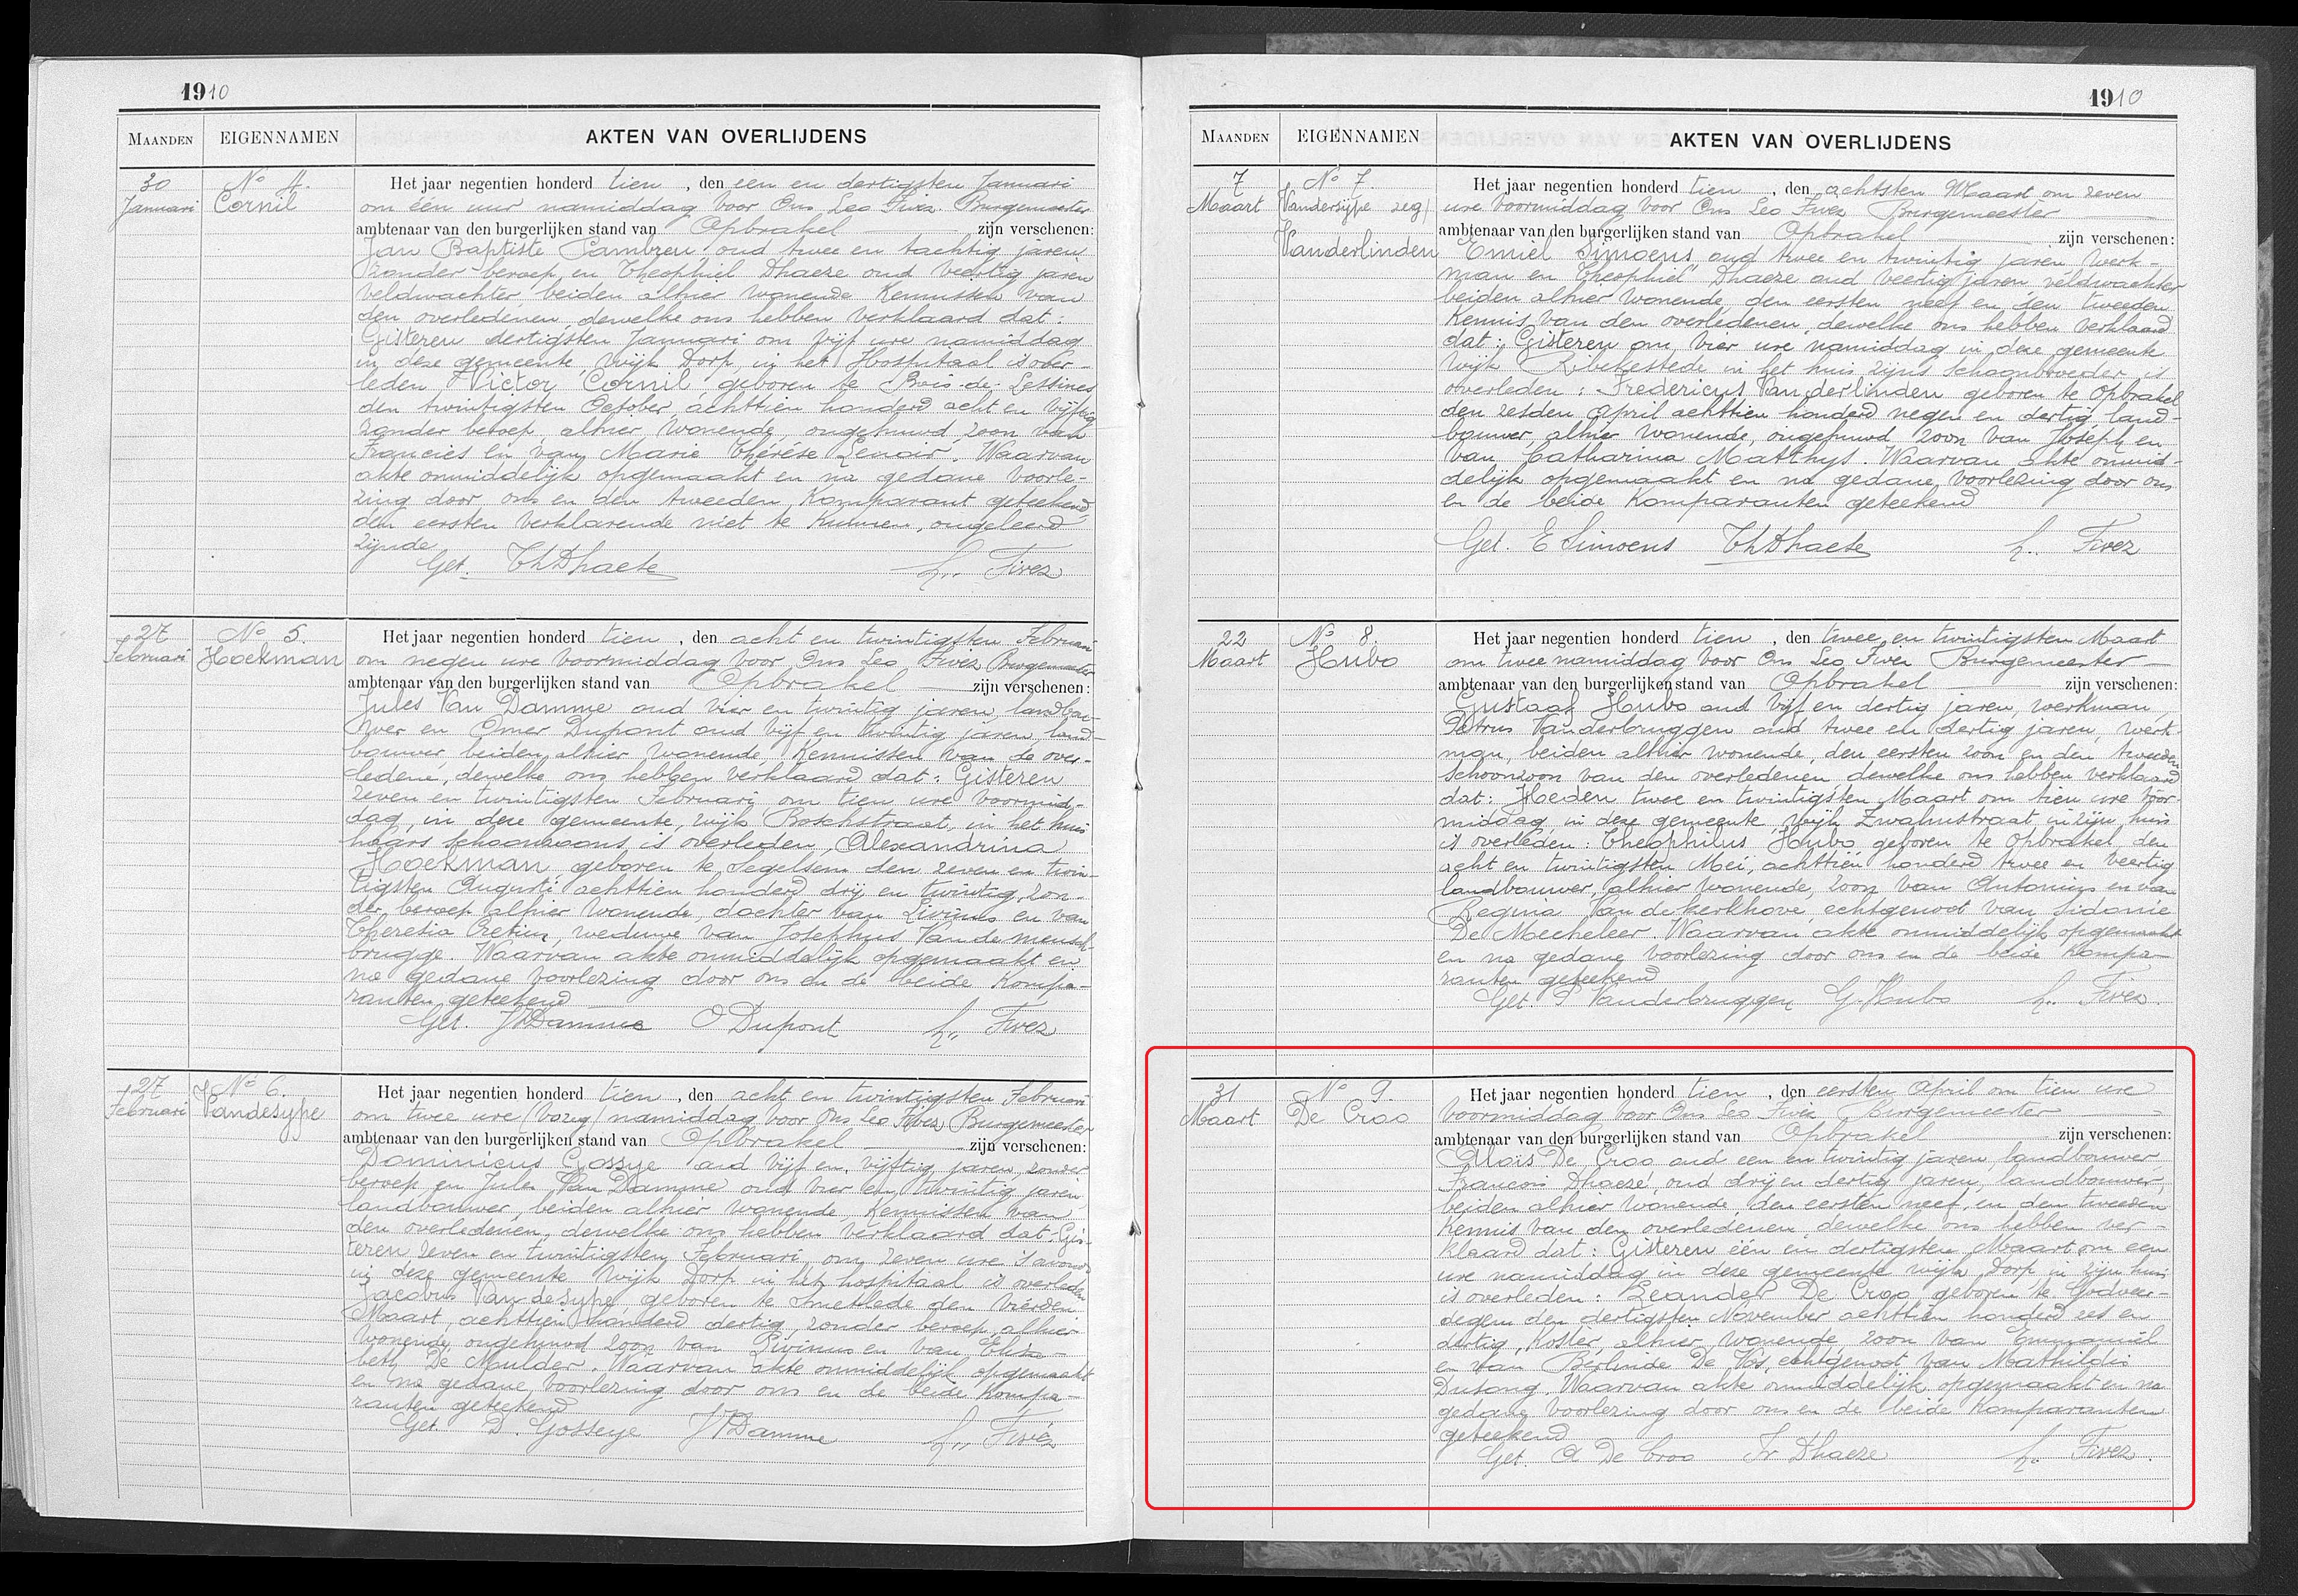 1910
MAANDEN EIGENNAMEN AKTEN VAN OVERLIJDENS
30 Januari
No 4. Cornil
Het jaar negentien honderd tien, den een en dertigsten Januari
om één uur namiddag voor Ons Leo Fivez Burgemeester
ambtenaar van den burgerlijken stand van Opbrakel zijn verschenen:
Jan Baptiste Cambren, oud twee en tachtig jaren
zonder beroep, en Theophiel Dhaeze oud veertig jaren
veldwachter beiden alhier wonende Kennissen van
den overledenen, dewelke ons hebben verklaard dat:
Gisteren dertigsten Januari om vijf ure namiddag
in deze gemeente, wijk Dorp, in het Hospitaal is over-
leden Victor Cornil, geboren te Bois-de-Lessines
den twintigsten October achttien honderd acht en vijftig
zonder beroep, alhier wonende, ongehuwd, zoon van
Francies en van Marie Therese Lenoir. Waarvan
akte onmiddelijk opgemaakt en na gedane voorle-
zing door ons en den tweeden Komparant geteekend,
den eersten verklarende niet te kunnen, ongeleerd
zijnde
Get. ThDhaeze L. Fivez
27 Februari
No 5. Hoekman
Het jaar negentien honderd tien, den acht en twintigsten Februari
om negen ure voormiddag voor Ons Leo Fivez Burgemeester
ambtenaar van den burgerlijken stand van Opbrakel zijn verschenen:
Jules Van Damme oud vier en twintig jaren, landbou-
wer en Omer Dupont oud vijf en twintig jaren, land-
bouwer, beiden alhier wonende, Kennissen van de over-
ledene, dewelke ons hebben verklaard dat: Gisteren
zeven en twintigsten Februari om tien ure voormid-
dag, in deze gemeente, wijk Boschstraat, in het huis
haars schoonzoons is overleden, Alexandrina
Hoekman, geboren te Segelsem den zeven en twin-
tigsten Augusti achttien honderd drij en twintig, zon-
der beroep alhier wonende, dochter van Livinus en van
Theresia Cretin, weduwe van Josephus Vandemeusel-
brugge. Waarvan akte onmiddelijk opgemaakt en
na gedane voorlezing door ons en de beide Kompa-
ranten geteekend
Get. JVDamme O Dupont L. Fivez
27 Februari
No 6. Vandesype
Het jaar negentien honderd tien, den acht en twintigsten Februari
om twee ure namiddag voor Ons Leo Fivez Burgemeester
ambtenaar van den burgerlijken stand van Opbrakel zijn verschenen:
Dominicus Gosseye oud vijf en vijftig jaren, zonder
beroep en Jules Van Damme oud vier en twintig jaren,
landbouwer, beiden alhier wonende, Kennissen van
den overledenen, dewelke ons hebben verklaard dat: Gis-
teren zeven en twintigsten Februari, om zeven ure 's avonds
in deze gemeente wijk Dorp in het hospitaal is overleden
Jacobus Vandesype, geboren te Smetlede den vierden
Maart, achttien honderd dertig, zonder beroep, alhier
wonende, ongehuwd zoon van Livinus en van Elisa-
beth De Mulder. Waarvan akte onmiddelijk opgemaakt
en na gedane voorlezing door ons en de beide Kompa-
ranten geteekend
Get. D. Gosseye JVDamme L. Fivez
1910
MAANDEN EIGENNAMEN AKTEN VAN OVERLIJDENS
7 Maart
No 7. Vandersijpe zeg/ Vanderlinden
Het jaar negentien honderd tien, den achtsten Maart om zeven
ure voormiddag voor Ons Leo Fivez Burgemeester
ambtenaar van den burgerlijken stand van Opbrakel zijn verschenen:
Emiel Simoens, oud twee en twintig jaren werk-
man en Theophiel Dhaeze oud veertig jaren veldwachter
beiden alhier wonende, den eersten neef en den tweeden
Kennis van den overledenen, dewelke ons hebben verklaard
dat: Gisteren om vier ure namiddag in deze gemeente
wijk Ribekestede in het huis zijns schoonbroeder is
overleden: Fredericus Vanderlinden geboren te Opbrakel
den zesden April achttien honderd negen en dertig, land-
bouwer, alhier wonende, ongehuwd, zoon van Joseph en
van Catharina Matthys. Waarvan akte onmid-
delijk opgemaakt en na gedane voorlezing door ons
en de beide Komparanten geteekend
Get. E Simoens ThDhaeze L. Fivez
22 Maart
No 8. Hubo
Het jaar negentien honderd tien, den twee en twintigsten Maart
om twee namiddag voor Ons Leo Fivez Burgemeester
ambtenaar van den burgerlijken stand van Opbrakel zijn verschenen:
Gustaaf Hubo oud vijf en dertig jaren, werkman,
Petrus Vanderbruggen oud twee en dertig jaren, werk-
man, beiden alhier wonende, den eersten zoon en den tweeden
schoonzoon van den overledenen dewelke ons hebben verklaard
dat: Heden twee en twintigsten Maart om tien ure voor-
middag in deze gemeente, wijk Zwalmstraat in zijn huis
is overleden: Theophilus Hubo, geboren te Opbrakel, den
acht en twintigsten Mei, achttien honderd twee en veertig
landbouwer, alhier wonende, zoon van Antonius en van
Regina Vandekerkhove, echtgenoot van Sidonie
De Mecheleer. Waarvan akte onmiddelijk opgemaakt
en na gedane voorlezing door ons en de beide Kompa-
ranten geteekend
Get. P Vanderbruggen G. Hubo L. Fivez.
31 Maart
No 9. De Croo
Het jaar negentien honderd tien, den eersten April om tien ure
voormiddag voor Ons Leo Fivez Burgemeester
ambtenaar van den burgerlijken stand van Opbrakel zijn verschenen:
Aloïs De Croo oud een en twintig jaren, landbouwer,
Francois Dhaeze, oud drij en dertig jaren, landbouwer,
beiden alhier wonende, den eersten neef, en den tweeden
Kennis van den overledenen dewelke ons hebben ver-
klaard dat: Gisteren één en dertigsten Maart om een
ure namiddag in deze gemeente wijk Dorp in zijn huis
is overleden: Leander De Croo, geboren te Godveer-
degem den dertigsten November achttien honderd zes en
dertig, Koster, alhier wonende, zoon van Emmanuel
en van Berlinde De Vos, echtgenoot van Mathildis
Dutang. Waarvan akte onmiddelijk opgemaakt en na
gedane voorlezing door ons en de beide Komparanten
geteekend
Get. A De Croo Fr Dhaeze L. Fivez.